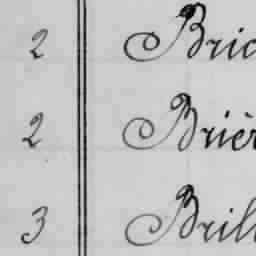 2 Bric
2 Briè
3 Bril